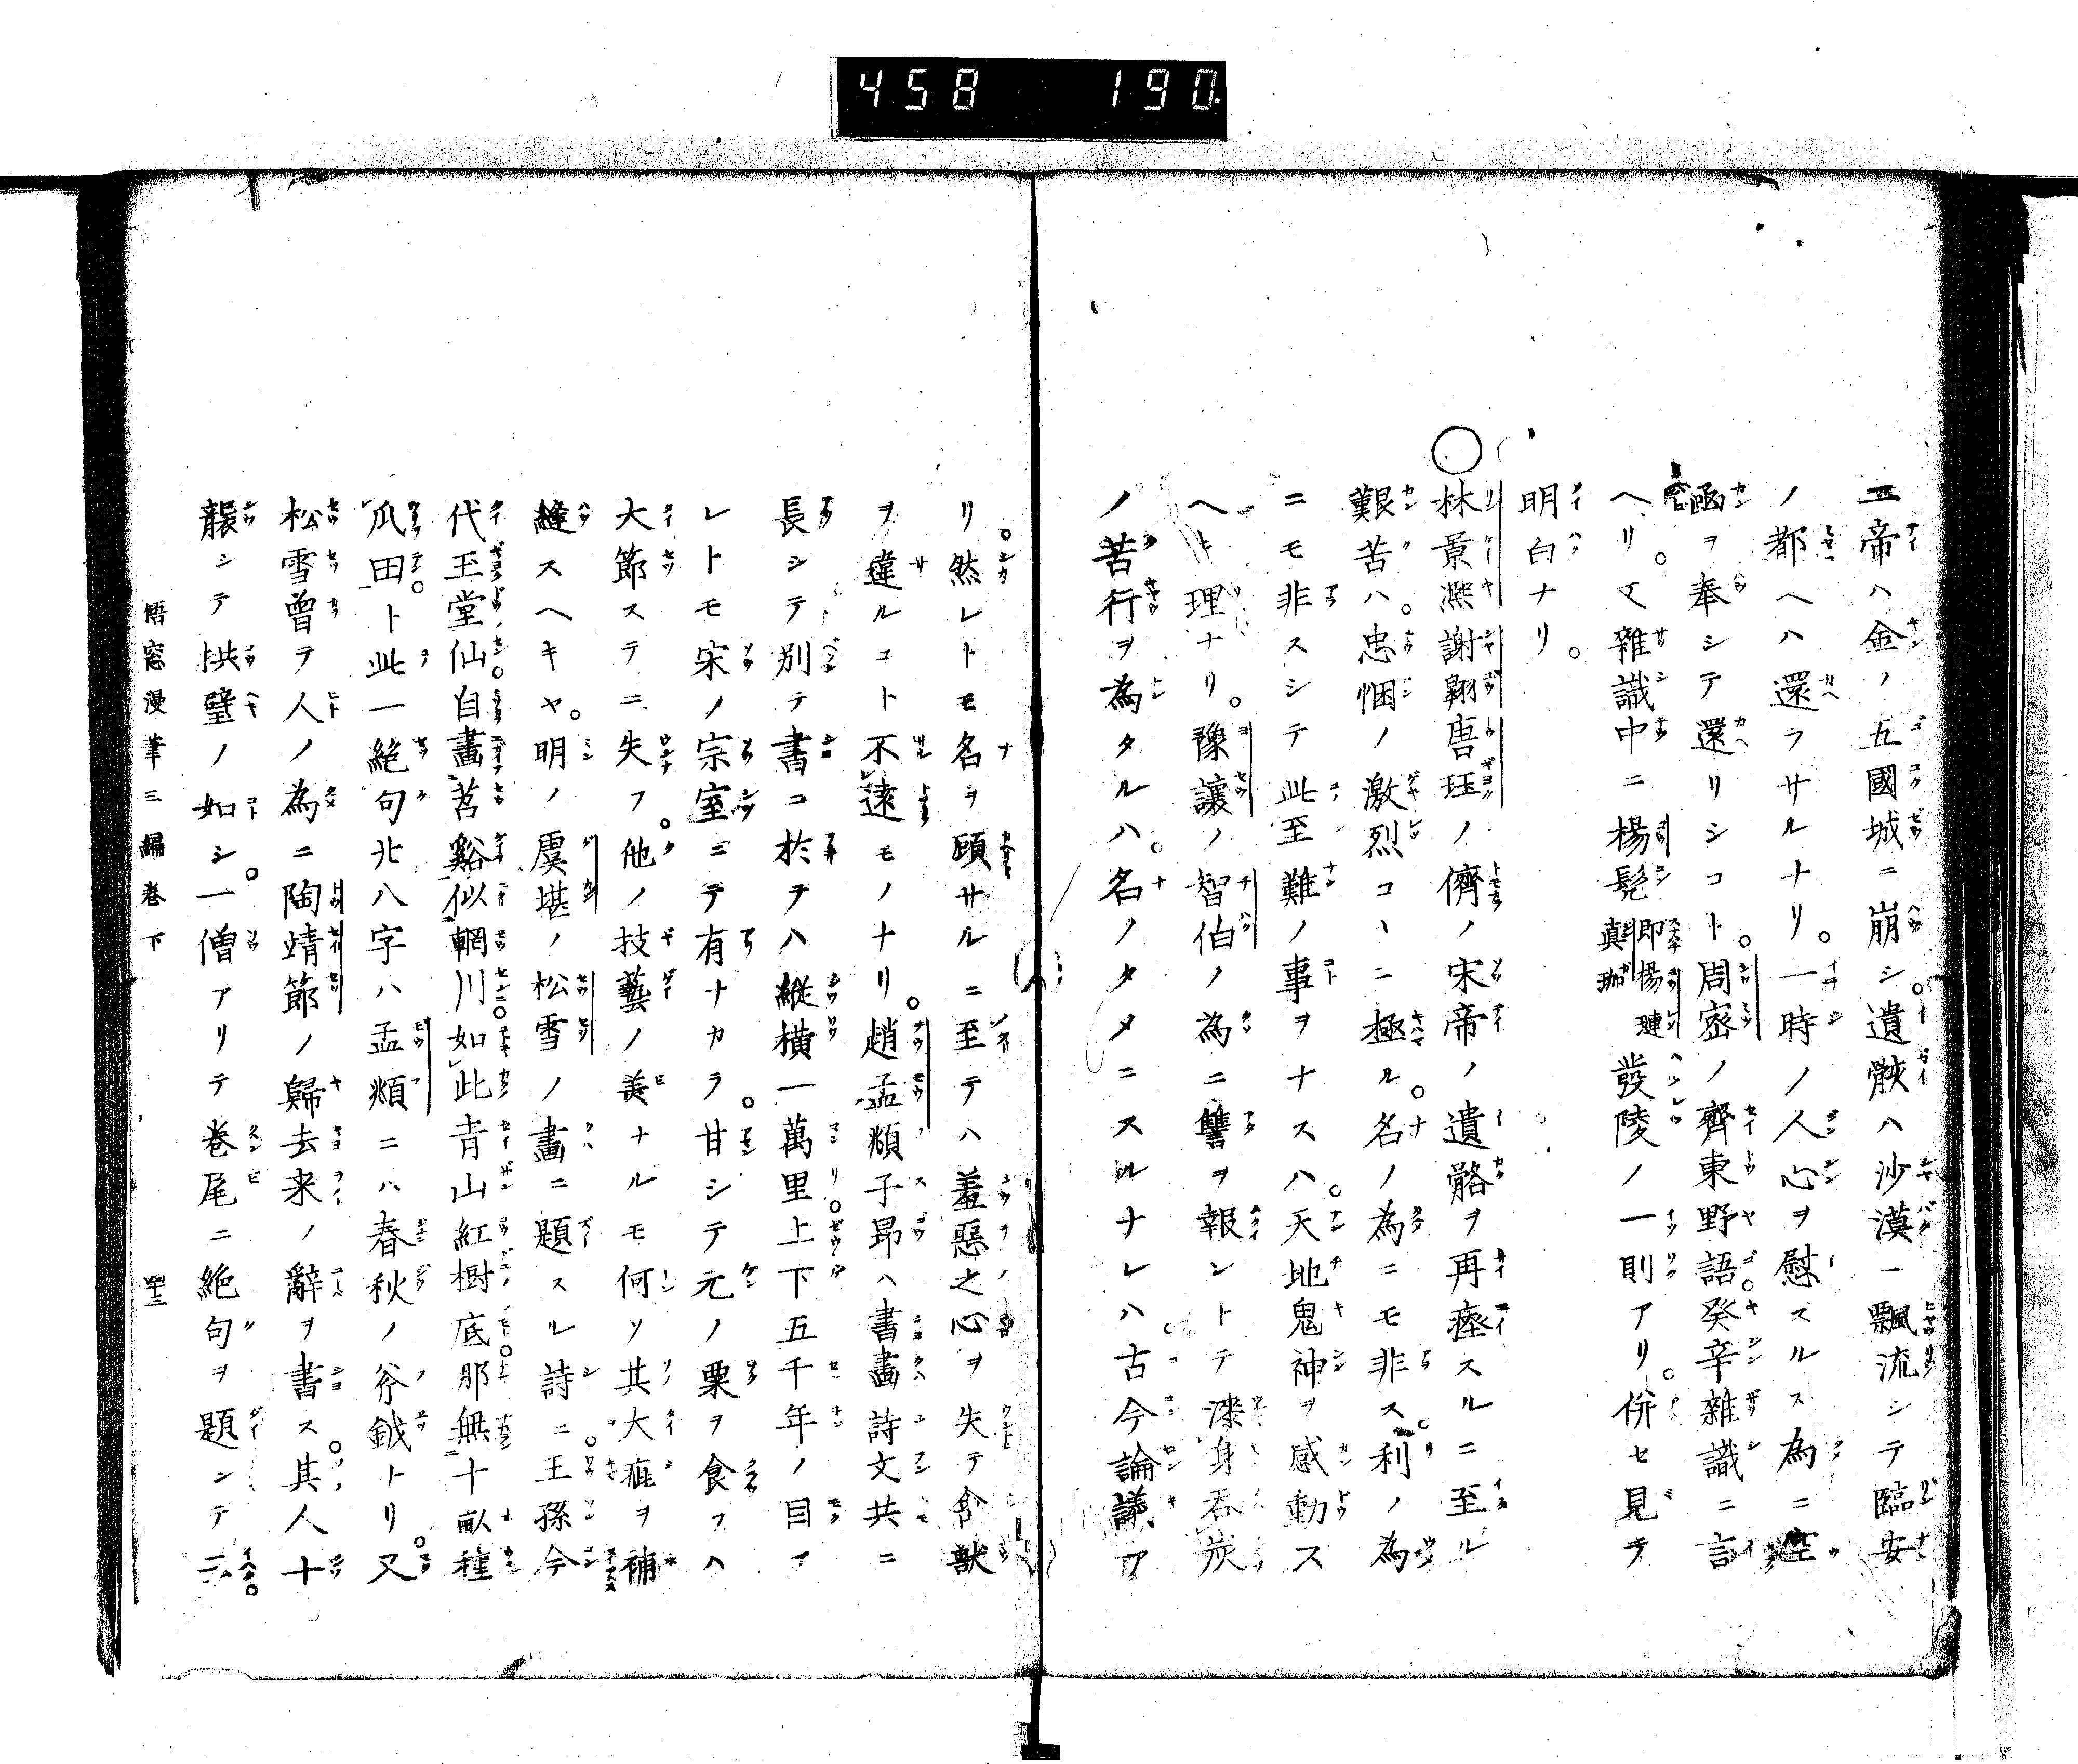 458 190
二帝ハ金ノ五國城ニ崩シ。遺骸ハ沙漠ニ飄流シテ臨安
ノ都ヘハ還ラサルナリ。一時ノ人心ヲ慰スルス為ニ空
函ヲ奉シテ還リシコト。周密ノ齊東野語。癸辛雜識ニ言
ヘリ。又雜識中ニ楊髡即楊璉真珈發陵ノ一則アリ。併セ見テ
明白ナリ。
○林景熈謝翺唐珏ノ儕ノ宋帝ノ遺骼ヲ再瘞スルニ至ル
艱苦ハ。忠悃ノ激烈コヽニ極ル。名ノ為ニモ非ス。利ノ為
ニモ非スシテ此至難ノ事ヲナスハ。天地鬼神ヲ感動ス
ヘキ理ナリ。豫讓ノ智伯ノ為ニ讐ヲ報ントテ漆身呑炭
ノ苦行ヲ為タルハ。名ノタメニスルナレハ古今論議ア
リ。然レトモ名ヲ頋サルニ至テハ羞惡之心ヲ失テ禽獸
ヲ違ルコト不遠モノナリ。趙孟頫子昻ハ書畫詩文共ニ
長シテ別テ書コ於ヲハ縱橫一萬里。上下五千年ノ目ア
レトモ宋ノ宗室ニテ有ナカラ。甘シテ元ノ粟ヲ食フハ
大節ステニ失フ。他ノ技藝ノ美ナルモ何ソ其大疵ヲ補
縫スヘキヤ。明ノ虞堪ノ松雪ノ畫ニ題スル詩ニ。王孫今
代玉堂仙。自畫苕谿似輞川。如此青山紅樹底。那無十畝種
瓜田。ト此一絶句北八字ハ孟頫ニハ春秋ノ斧鉞トリ。又
松雪曾テ人ノ為ニ陶靖節ノ歸去来ノ辭ヲ書ス。其人十
襲シテ拱璧ノ如シ。一僧アリテ巻尾ニ絶句ヲ題シテ云。
悟窓漫筆三編巻下 四十三